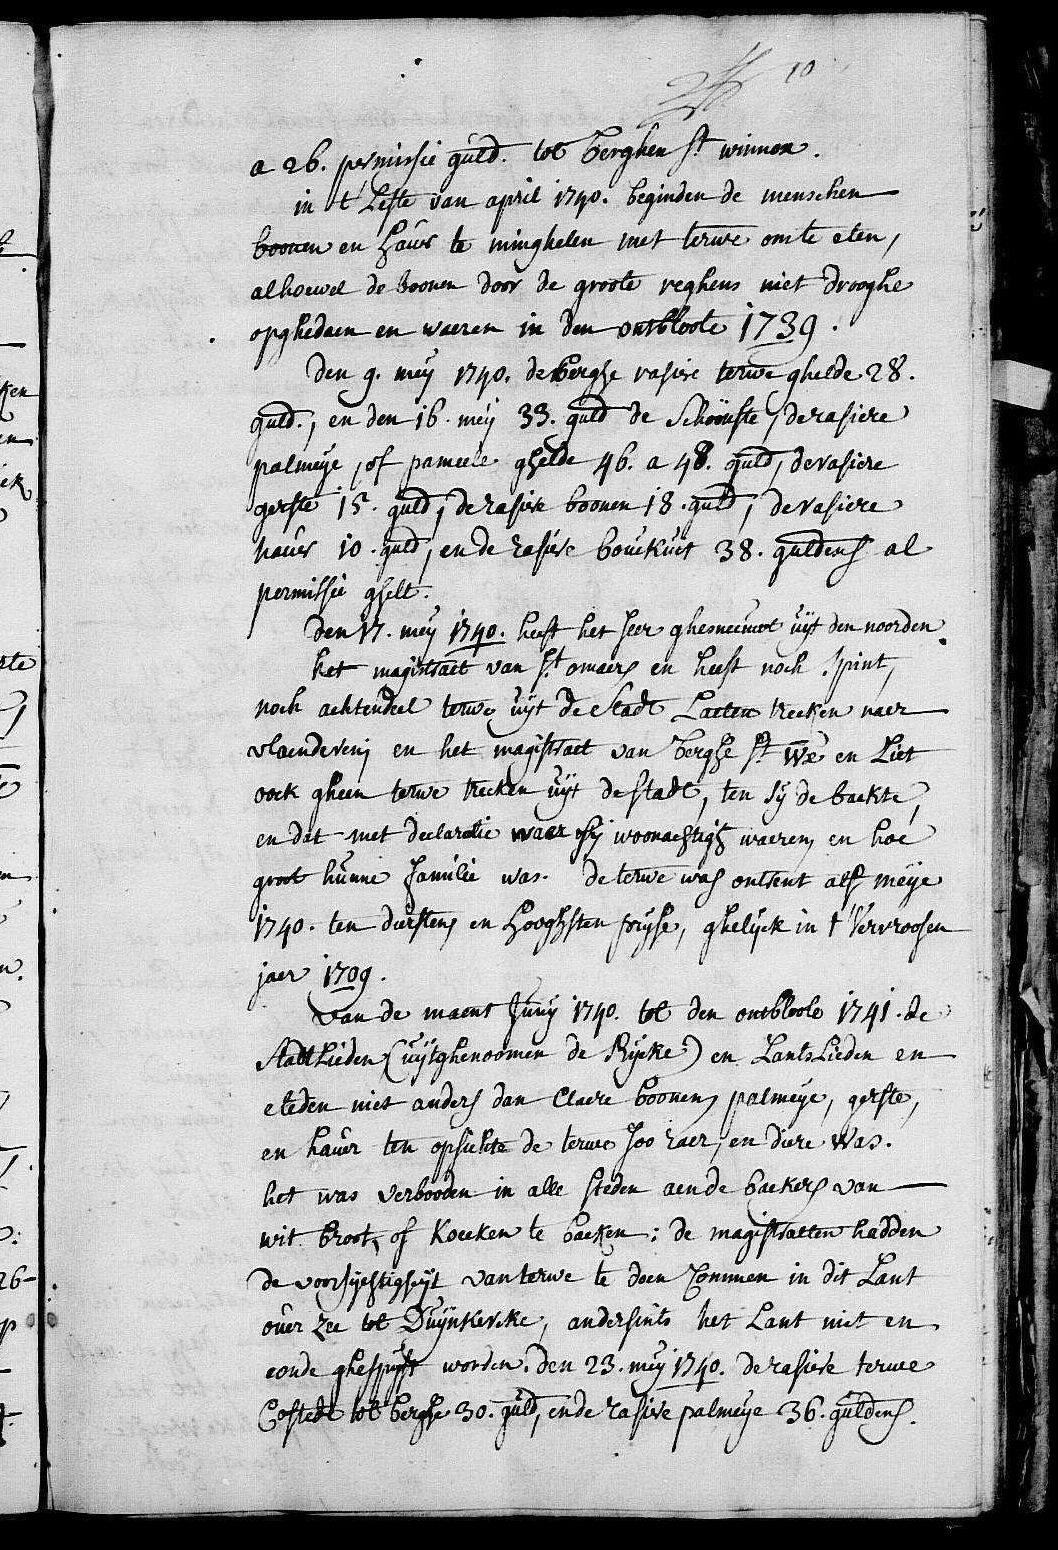 10
a 26. permissie guld. tot Berghen st winnox.
in t' Leste van april 1740. beginden de menschen
boonen en haver te minghelen met terwe om te eten,
alhoewel de boonen door de groote reghens niet drooghe
opghedaen en waeren in den ontbloote 1739.
Den 9. meij 1740. de berghe rasiere terwe ghelde 28.
guld., en den 16. meij 33. guld de schoonste, de rasiere
palmeije, of pameele ghelde 46. a 48. guld, de rasiere
gerste 15. guld, de rasiere boonen 18. guld, de rasiere
haver 10. guld, en de rasiere bouckuijt 38. guldens al
permissie ghelt.
Den 17. meij 1740. heeft het seer ghesneeuwt uijt den noorden.
het magistraet van st omaers en heeft noch spint,
noch achtendeel terwe uijt de stadt Laeten trecken naer
vlaenderen, en het magistraet van berghe st We en Liet
oock gheen terwe trecken uijt de stadt, ten sij de backte,
en dat met declaratie waer sij woonachtigh waeren, en hoe
groot hunne familie was. de terwe was ontrent alf meije
1740. ten diersten, en hooghsten prijse, ghelijck in t' vervroosen
jaer 1709.
Van de maent Junij 1740. tot den ontbloote 1741. de
stadtlieden (uijtghenoomen de Rijcke) en Lantslieden en
eteden niet anders dan claere boonen, palmeije, gerste,
en haver ten opsichte de terwe soo raer, en diere was.
het was verbooden in alle steden aen de backers van
wit broot, of Koecken te backen: de magistraeten hadden
de voorsijchtigheijt van terwe te doen commen in dit Lant
over zee tot Duijnkercke, andersints het Lant niet en
conde ghespijst worden. den 23. meij 1740. de rasiere terwe
Costede tot berghe 30. guld, en de rasiere palmeije 36. guldens.